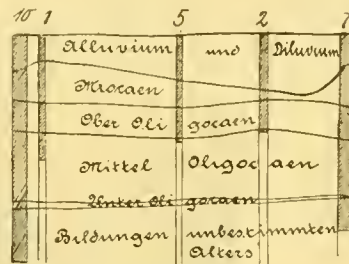 10 1 5 2 7
Alluvium und Diluvium
Miocaen
Ober Oligocaen
Mittel Oligocaen
Unter Oligocaen
Bildungen unbestimmten
Alters